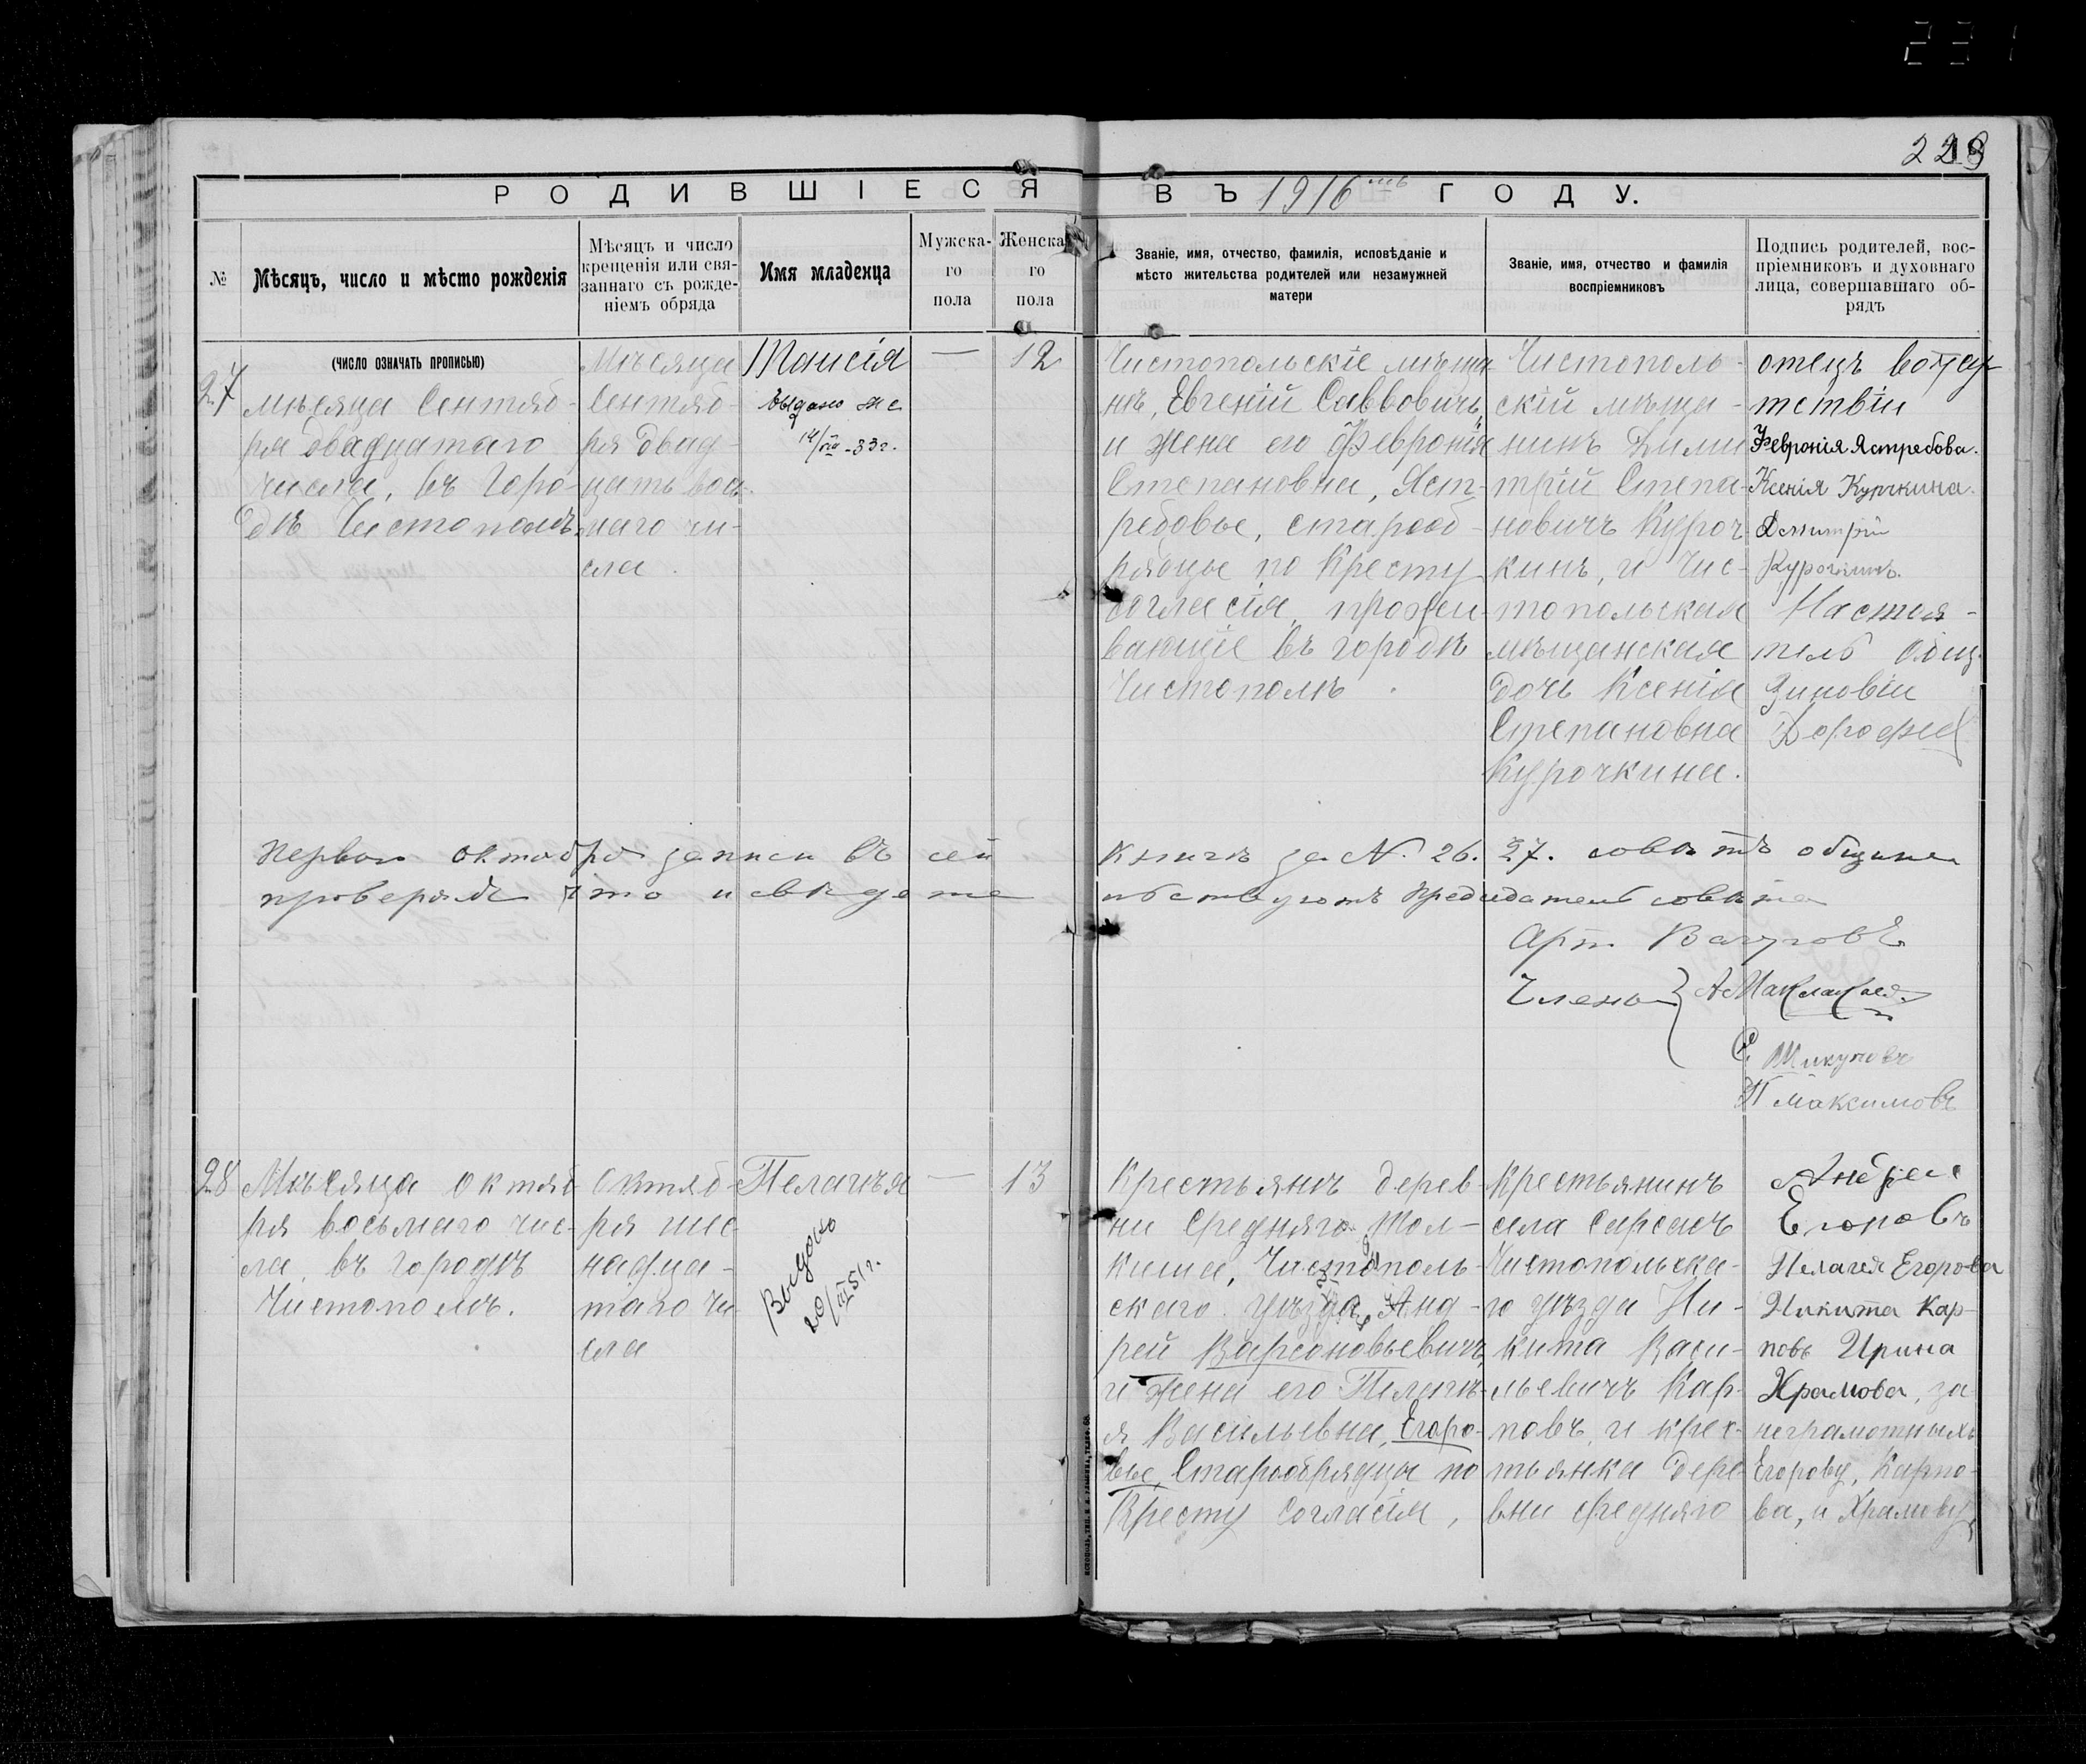 231
229
РОДИВШІЕСЯ ВЪ 1916 мъ ГОДУ.
№
Мѣсяцъ, число и мѣсто рожденія
Мѣсяцъ и число
крещенія или свя-
заннаго съ рожде-
ніемъ обряда
Имя младенца
Мужска-
го
пола
Женска-
го
пола
Званіе, имя, отчество, фамилія, исповѣданіе и
мѣсто жительства родителей или незамужней
матери
Званіе, имя, отчество и фамилія
воспріемниковъ
Подпись родителей, вос-
пріемниковъ и духовнаго
лица, совершавшаго об-
рядъ
(ЧИСЛО ОЗНАЧАТЬ ПРОПИСЬЮ)
27
мѣсяца Сентяб-
ря двадцатаго
числа, въ Горо-
дѣ Чистополѣ
Мѣсяца
Сентяб-
ря двад-
цать вось-
маго чи-
сла.
Таисія
Выдано
33г.
—
12
Чистопольскіе мѣща-
не, Евгеній Савовичъ,
и жена его Февронія
Степановна, Яст-
ребовы, старооб-
рядцы по Кресту
согласія, прожи-
вающіе въ городѣ
Чистополѣ.
Чистополь-
скій мѣща-
нинъ Дими-
трій Степа-
новичъ Куроч-
кинъ, и Чис-
топольская
мѣщанская
дочь Ксенія
Степановна
Курочкина.
отецъ вотсу-
тствіи
Февронія Ястребова.
Ксенія Курчкина.
Дмитрій
Курочкинъ.
Настоя-
тель общ.
Зиновіи
Дорофеев
Первого октября записи въ сей книгѣ за N. 26. 27. советъ общины
проверялъ что и свидетельствуютъ председатель совета
Арт. Вачуговъ
Члены
А Маклаков
С. Шикуновъ
П Максимовъ
28
Мѣсяца октяб-
ря восьмаго чис-
ла, въ городѣ
Чистополѣ.
Октяб-
ря шес-
надца-
таго чи-
сла
Пелагѣя
Выдано
20/III 51г.
—
13
Крестьянѣ дерев-
ни Средняго Тол-
киша, Чистополь-
скаго уѣзда, Анд-
рей Варсоновьевичъ,
и жена его Пелагѣ-
я Васильевна, Егоро-
вы, Старообрядцы по
Кресту согласія,
Крестьянинъ
села Сарсасъ
Чистопольска-
го уѣзда Ни-
кита Васи-
льевичъ Кар-
повъ, и крес-
тьянка дере-
вни Средняго
Андрей
Егоровъ
Пелагея Егорова
Никита Кар-
повъ Ирина
Храмова, за
неграмотныхъ
Егорову, Карпо-
ва, и Храмову,